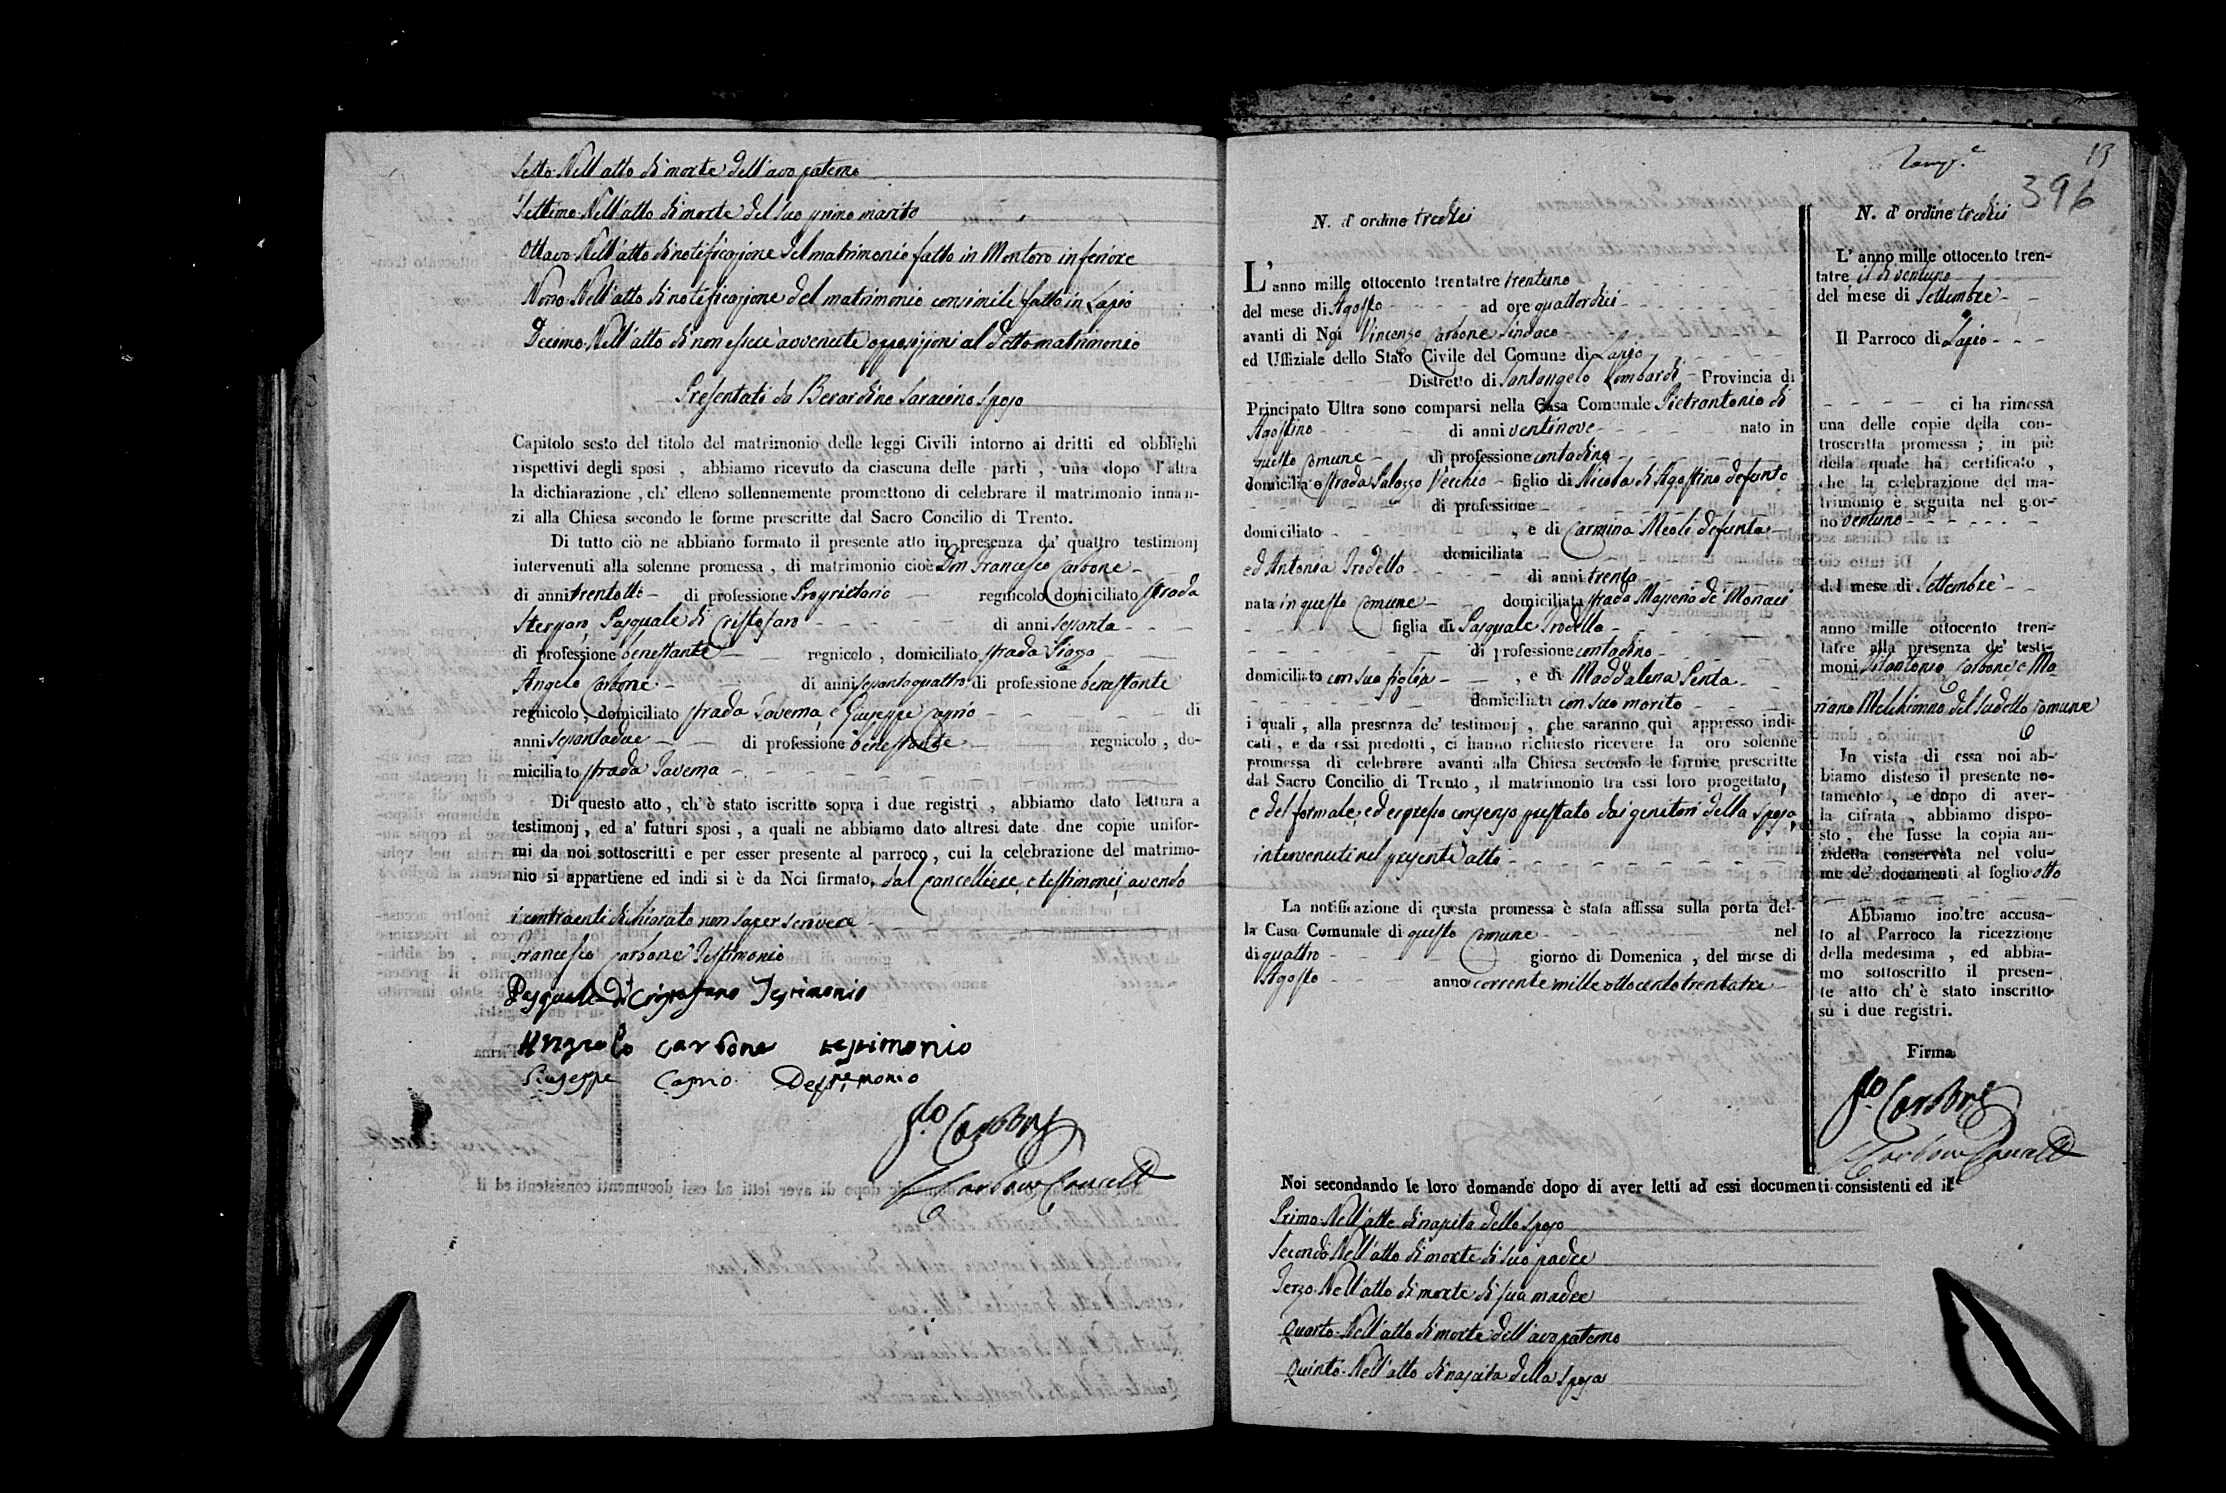 Sesto. Nell'atto di morte dell'avo paterno
Settimo. Nell'atto di morte del suo primo marito
Ottavo. Nell'atto di notificazione del matrimonio fatto in Montoro inferiore
Nono. Nell'atto di notificazione del matrimonio consimile fatto in Lapio
Decimo. Nell'atto di non essere avvenute opposizioni al detto matrimonio
Presentati da Berardino Saracino sposo
Capitolo sesto del titolo del matrimonio delle leggi Civili intorno ai dritti ed obblighi
rispettivi degli sposi , abbiamo ricevuto da ciascuna delle parti , una dopo l'altra
la dichiarazione , ch' elleno sollennemente promettono di celebrare il matrimonio innan-
zi alla Chiesa secondo le forme prescritte dal Sacro Concilio di Trento.
Di tutto ciò ne abbiano formato il presente atto in presenza da' quattro testimonj
intervenuti alla solenne promessa , di matrimonio cioè Don Francesco Carbone
di anni trentotto di professione Proprietario regnicolo domiciliato strada
Pasquale di Cristofaro di anni sessanta
di professione benestante regnicolo , domiciliato strada Piazza
Angelo Carbone di anni sessantaquattro di professione benestante
regnicolo , domiciliato strada Taverna, e Giuseppe Caprio di
anni sessantadue di professione benestante regnicolo , do-
miciliato strada Taverna
Di questo atto , ch' è stato iscritto sopra i due registri , abbiamo dato lettura a
testimonj , ed a' futuri sposi , a quali ne abbiamo dato altresi date dne copie unifor-
mi da noi sottoscritti e per esser presente al parroco , cui la celebrazione del matrimo-
nio si appartiene ed indi si è da Noi firmato, dal Cancelliere, e testimonei, avendo
i contraenti dichiarato non saper scrivere
Francesco Carbone Testimonio
Pasquale di Cristofano Testimonio
Angelo Carbone testimonio
Giuseppe Caprio Testimonio
Carbone
Carbone Cancell
13
396
N. d' ordine tredici
L' anno mille ottocento trentatre trentuno
del mese di Agosto ad ore quattordici
avanti di Noi Vincenzo Carbone Sindaco
ed Uffiziale dello Stato Civile del Comune di Lapio
Distretto di Santangelo Lombardi Provincia di
Principato Ultra sono comparsi nella Casa Comunale Pietrantonio di
Agostino di anni ventinove nato in
questo Comune di professione contadino
domiciliato strada Palazzo Vecchio figlio di Nicola di Agostino defunto
di professione
domiciliato , e di Carmina Meoli defunta
domiciliata
ed Antonia Trodella di anni trenta
nata in questo Comune domiciliata strada de' Monaci
figlia di Pasquale Trodella
di professione contadino
domiciliato con sua figlia , e di Maddalena Penta
domiciliata con suo marito
i quali , alla presenza de' testimonj , che saranno quì appresso indi-
cati , e da essi predotti , ci hanno richiesto ricevere la oro solenne
promessa di celebrare avanti alla Chiesa secondo le forme prescritte
dal Sacro Concilio di Trento , il matrimonio tra essi loro progettato,
e del formale, ed espresso consenso prestato dai genitori della sposa,
intervenuti nel presente atto
La notificazione di questa promessa è stata affissa sulla porta del-
la Casa Comunale di questo Comune nel
di quattro giorno di Domenica , del mese di
Agosto anno corrente mille ottocento trentatre
Noi secondando le loro domande dopo di aver letti ad essi documenti consistenti ed il
Primo. Nell'atto di nascita dello sposo
Secondo. Nell'atto di morte di suo padre
Terzo. Nell'atto di morte di sua madre
Quarto. Nell'atto di morte dell'avo paterno
Quinto. Nell'atto di nascita della sposa
N. d' ordine tredici
L' anno mille ottocento tren-
tatre il di ventuno
del mese di Settembre
Il Parroco di Lapio
ci ha rimessa
una delle copie della con-
troscritta promessa ; in piè
della quale ha certificato ,
che la celebrazione del ma-
trimonio è seguita nel gior-
no ventuno
del mese di Settembre
anno mille ottocento tren-
tatre alla presenza de' testi-
moni Carbone, e Ma
riano Melchionno del sudetto Comune
In vista di essa noi ab-
biamo disteso il presente no-
tamento , e dopo di aver-
la cifrata , abbiamo dispo-
sto , che fusse la copia an-
zidetta conservata nel volu-
me de' documenti al foglio otto
Abbiamo ino'tre accusa-
to al Parroco la ricezzione
della medesima , ed abbia-
mo sottoscritto il presen-
te atto ch' è stato inscritto
su i due registri.
Firma
Carbone
Carbone Cancell